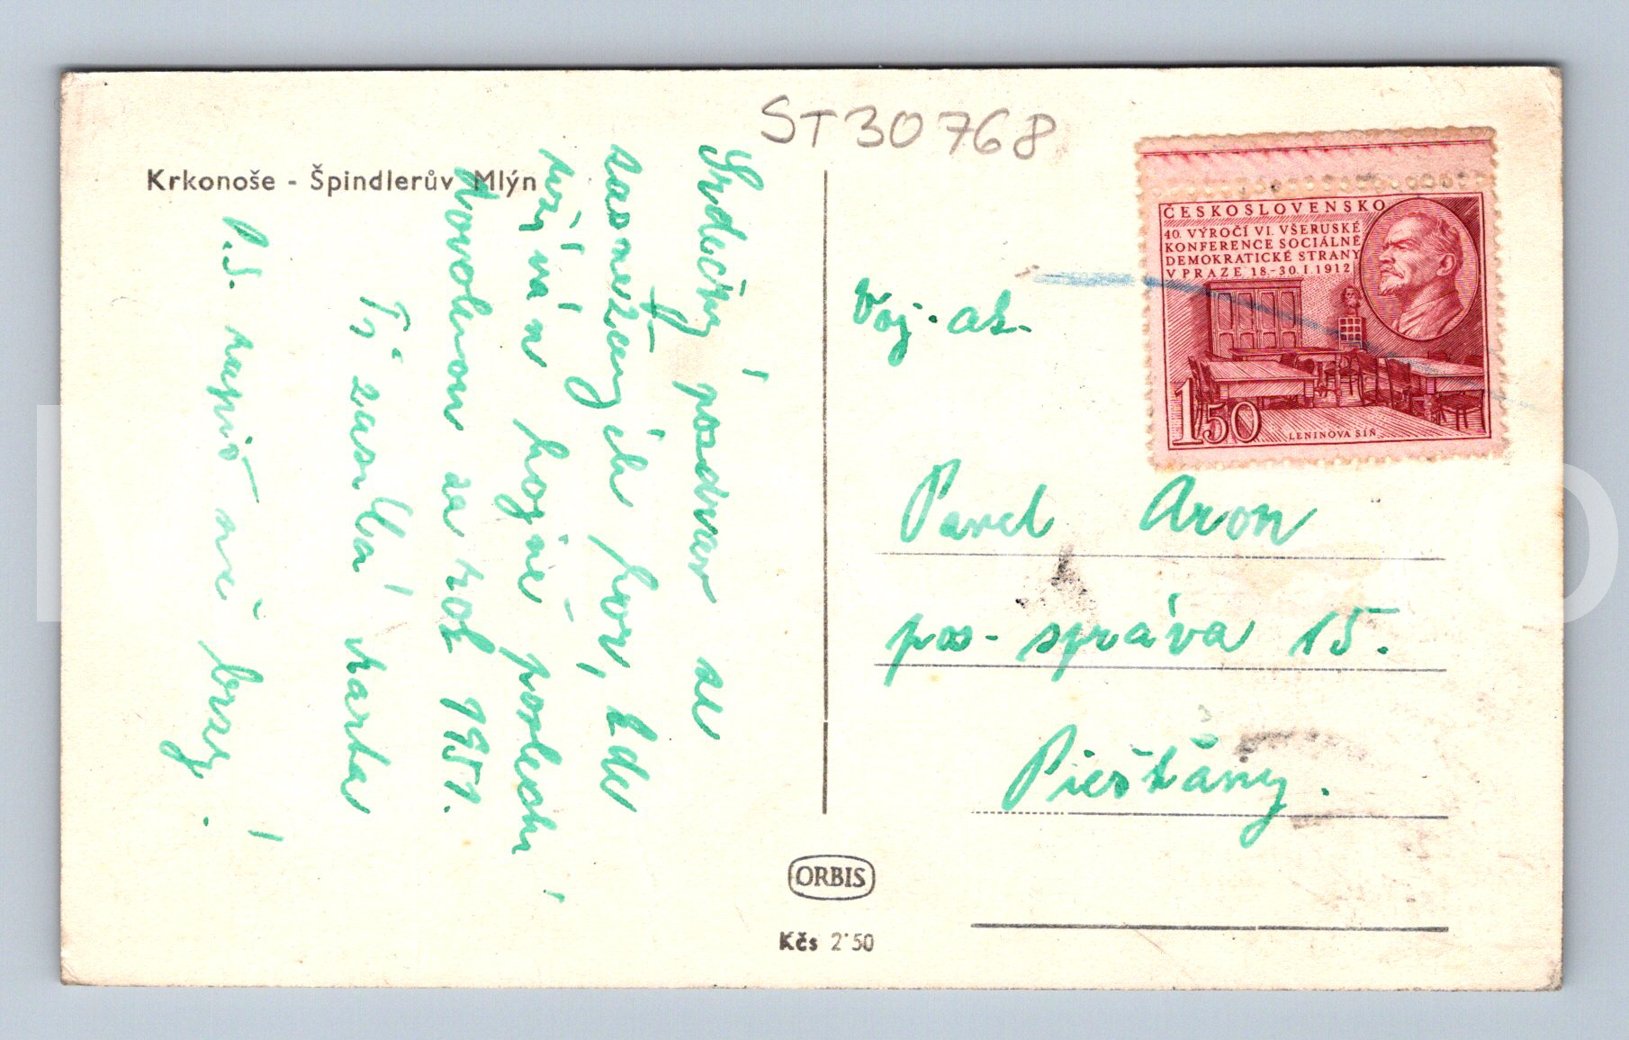 ST30768
Krkonoše - Špindlerův Mlýn
Srdečný pozdrav ze
zasněžených hor, kde
užívám hojně poslední
dovolenou za rok 1951.
Tvá Marta
P.S. napiš mi brzy!
ČESKOSLOVENSKO
40. VÝROČÍ VI. VŠERUSKÉ
KONFERENCE SOCIÁLNĚ
DEMOKRATICKÉ STRANY
V PRAZE 18.-30.I.1912
1.50
LENINOVA SÍŇ
Voj. ak.
Pavel Aron
pos- správa 15.
Piešťany.
ORBIS
Kčs 2·50